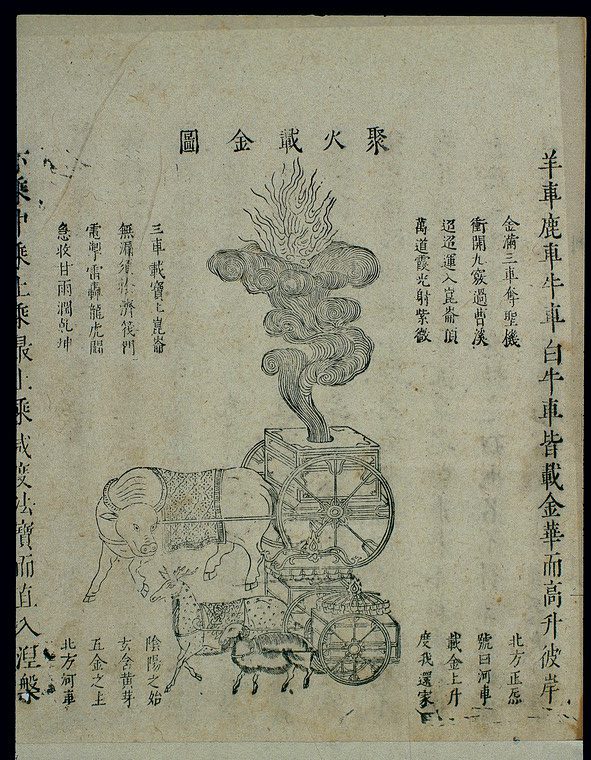 聚火載金圖
羊車鹿車牛車白牛車皆載金華而高升彼岸
金滿三車奪聖機
衝開九竅過曹溪
迢迢運入崑崙頂
萬道霞光射紫微
三車載寶上崑崙
無漏
電掣雷轟龍虎鬪
急收甘雨潤乾坤
北方正炁
號曰河車
載金上升
度我還家
陰陽之始
玄含黃芽
五金之主
北方河車
乘中乘上乘最上乘咸度法寶而直入涅槃